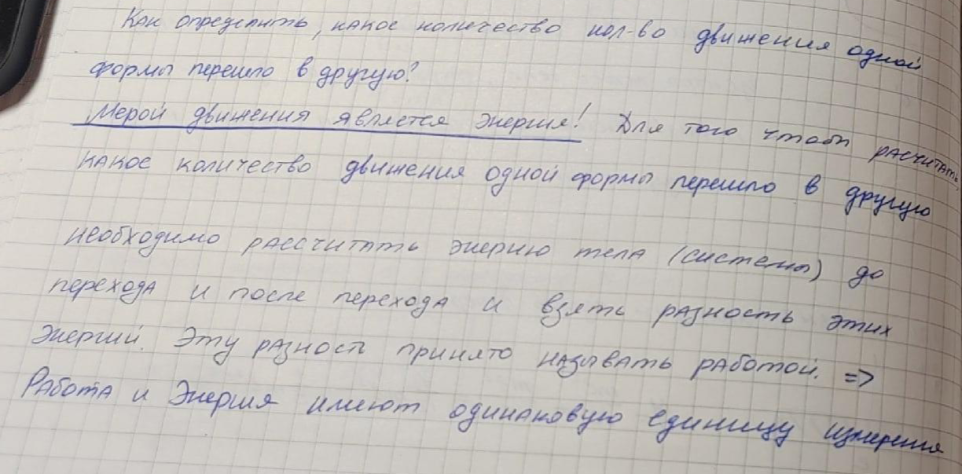 Как определить, какое количество кол-во движения одной
формы перешло в другую?
Мерой движения является энергия! Для того чтобы расчитать,
какое количество движения одной формы перешло в другую
необходимо рассчитать энергию тела (системы) до
перехода и после перехода и взять разность этих
энергий. Эту разность принято называть работой. =>
Работа и Энергия имеют одинаковую единицу измерения